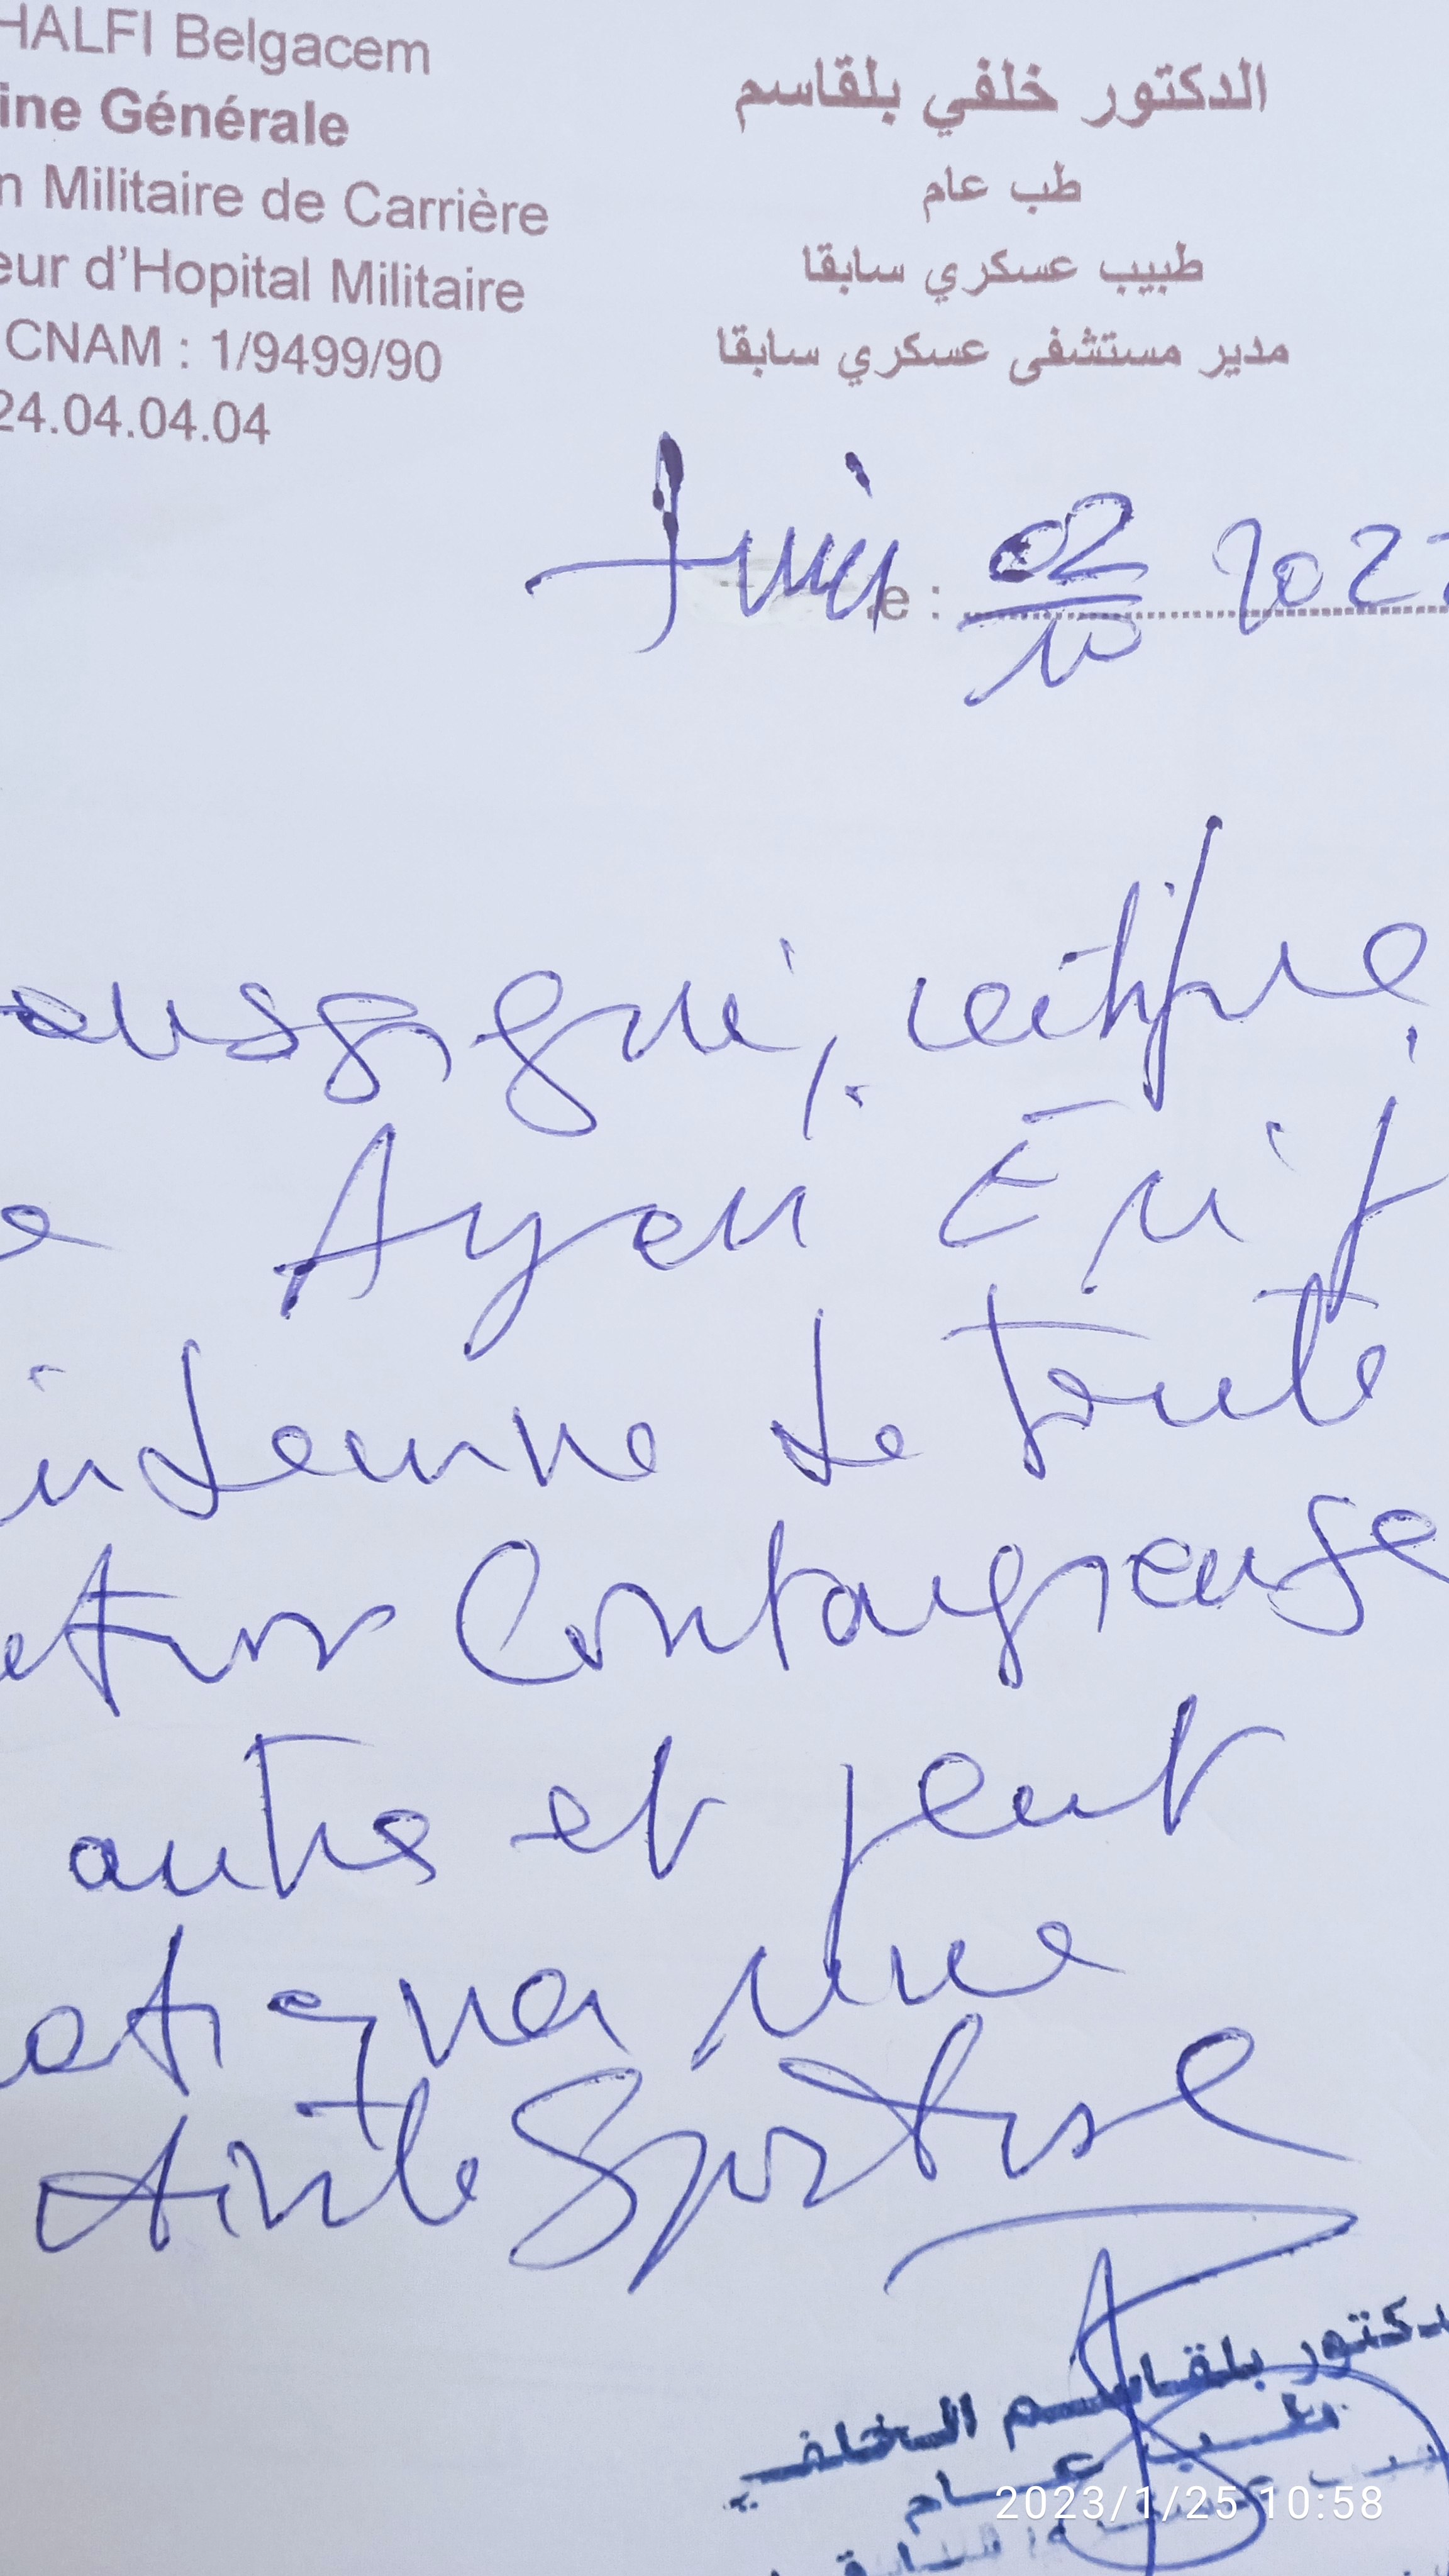 HALFI Belgacem
ine Générale
n Militaire de Carrière
eur d'Hopital Militaire
CNAM : 1/9499/90
24.04.04.04
الدكتور خلفي بلقاسم
طب عام
طبيب عسكري سابقا
مدير مستشفى عسكري سابقا
e : 02/10 202
oussigné, certifie
e Ayari
indemne de toute
ection Contagieuse
autre et peut
atiquer une
tivité Sportive
دكتور بلقاسم الخلفي
طب عام
2023/1/25 10:58